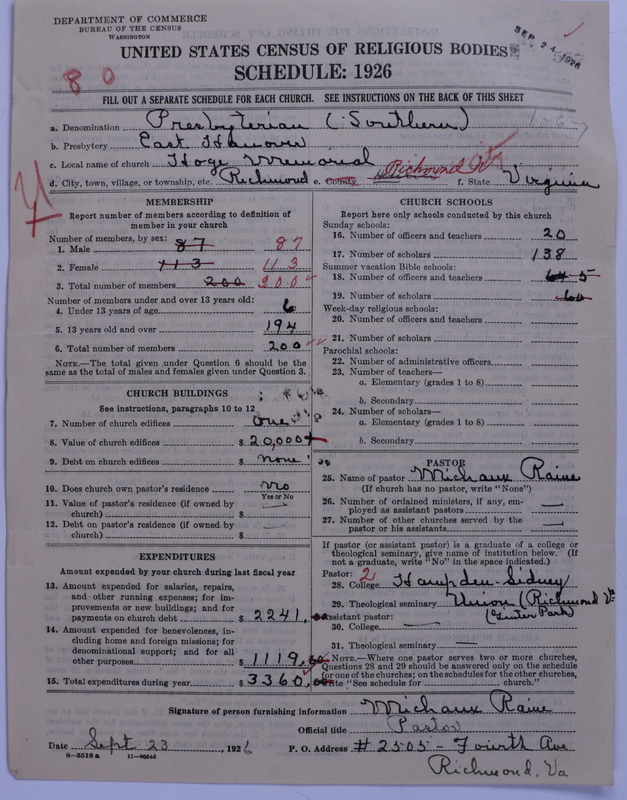 DEPARTMENT OF COMMERCE
BUREAU OF THE CENSUS
WASHINGTON
SEP 24 1926
UNITED STATES CENSUS OF RELIGIOUS BODIES
SCHEDULE: 1926
80
FILL OUT A SEPARATE SCHEDULE FOR EACH CHURCH. SEE INSTRUCTIONS ON THE BACK OF THIS SHEET
1-6-7
a. Denomination Presbyterian (Southern)
b. Presbytery East Hanover
c. Local name of church Hoge Memorial
d. City, town, village, or township, etc. Richmond e. County Richmond City f. State Virginia
MEMBERSHIP
Report number of members according to definition of
member in your church
Number of members, by sex:
1. Male 87 87
2. Female 113 113
3. Total number of members 200 200
Number of members under and over 13 years old:
4. Under 13 years of age 6
5. 13 years old and over 194
6. Total number of members 200
NOTE.—The total given under Question 6 should be the
same as the total of males and females given under Question 3.
CHURCH BUILDINGS
See instructions, paragraphs 10 to 12
7. Number of church edifices One
8. Value of church edifices $20,000
9. Debt on church edifices $ None
10. Does church own pastor's residence No
Yes or No
11. Value of pastor's residence (if owned by
church) $ —
12. Debt on pastor's residence (if owned by
church) $
EXPENDITURES
Amount expended by your church during last fiscal year
13. Amount expended for salaries, repairs,
and other running expenses; for im-
provements or new buildings; and for
payments on church debt $2241.00
14. Amount expended for benevolences, in-
cluding home and foreign missions; for
denominational support; and for all
other purposes $1119.00
15. Total expenditures during year $3360.00
CHURCH SCHOOLS
Report here only schools conducted by this church
Sunday schools:
16. Number of officers and teachers 20
17. Number of scholars 138
Summer vacation Bible schools:
18. Number of officers and teachers 5
19. Number of scholars 60
Week-day religious schools:
20. Number of officers and teachers
21. Number of scholars
Parochial schools:
22. Number of administrative officers
23. Number of teachers—
a. Elementary (grades 1 to 8)
b. Secondary
24. Number of scholars—
a. Elementary (grades 1 to 8)
b. Secondary
PASTOR
25. Name of pastor Michaux Raine
(If church has no pastor, write "None")
26. Number of ordained ministers, if any, em-
ployed as assistant pastors —
27. Number of other churches served by the
pastor or his assistants —
If pastor (or assistant pastor) is a graduate of a college or
theological seminary, give name of institution below. (If
not a graduate, write "No" in the space indicated.)
Pastor: 2
28. College Hampden-Sidney
29. Theological seminary Union (Richmond Va
(Ginter Park)
Assistant pastor:
30. College —
31. Theological seminary —
NOTE.—Where one pastor serves two or more churches,
Questions 28 and 29 should be answered only on the schedule
for one of the churches; on the schedules for the other churches,
write "See schedule for church."
Signature of person furnishing information Michaux Raine
Official title Pastor
Date Sept 23, 1926 P. O. Address #2505 - Fourth Ave
8—5518 a
Richmond, Va